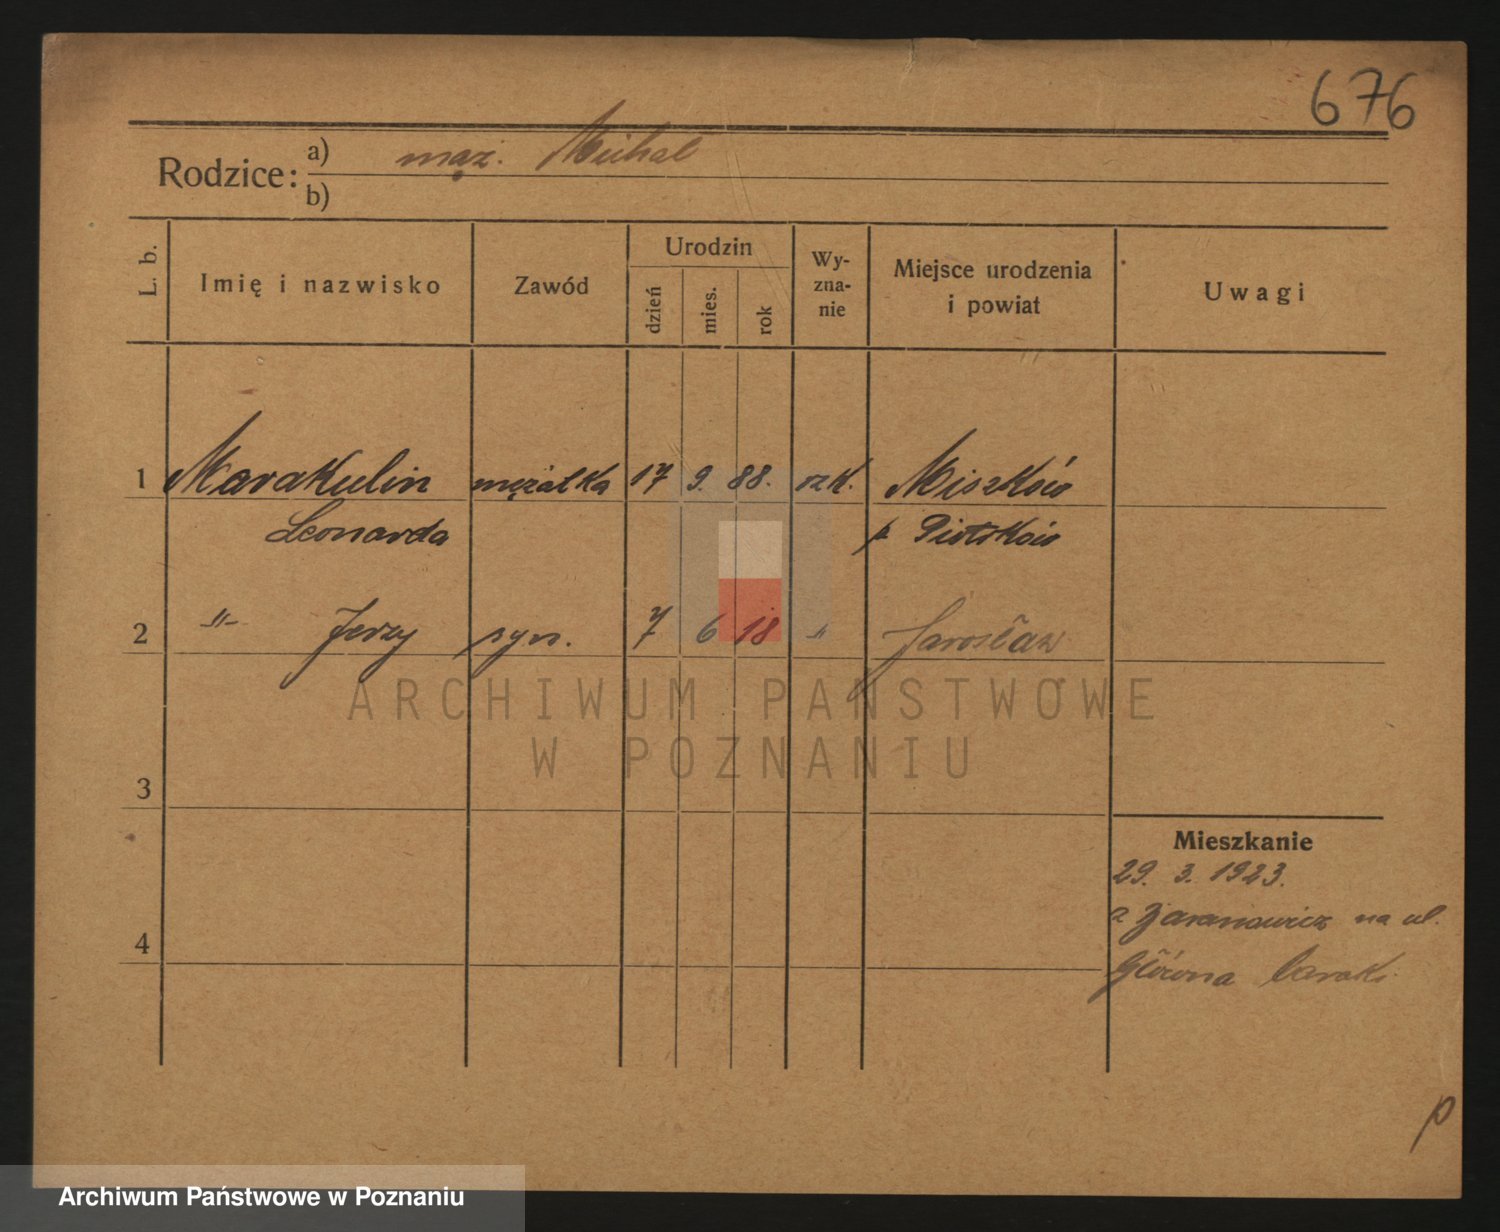 676
Rodzice: a) mąż. Michał
b)
L. b. Imię i nazwisko Zawód Urodzin dzień mies. rok Wy-zna-nie Miejsce urodzenia i powiat Uwagi
1 Marakulin mężatka 17 9. 88. rzk. Miszków
Leonarda p Piotrków
2 -"- Jerzy syn. 7 6 18 " Jarosław
3
4
Mieszkanie
29. 3. 1923.
z na ul.
Główna barak.
p
ARCHIWUM PAŃSTWOWE
W POZNANIU
Archiwum Państwowe w Poznaniu